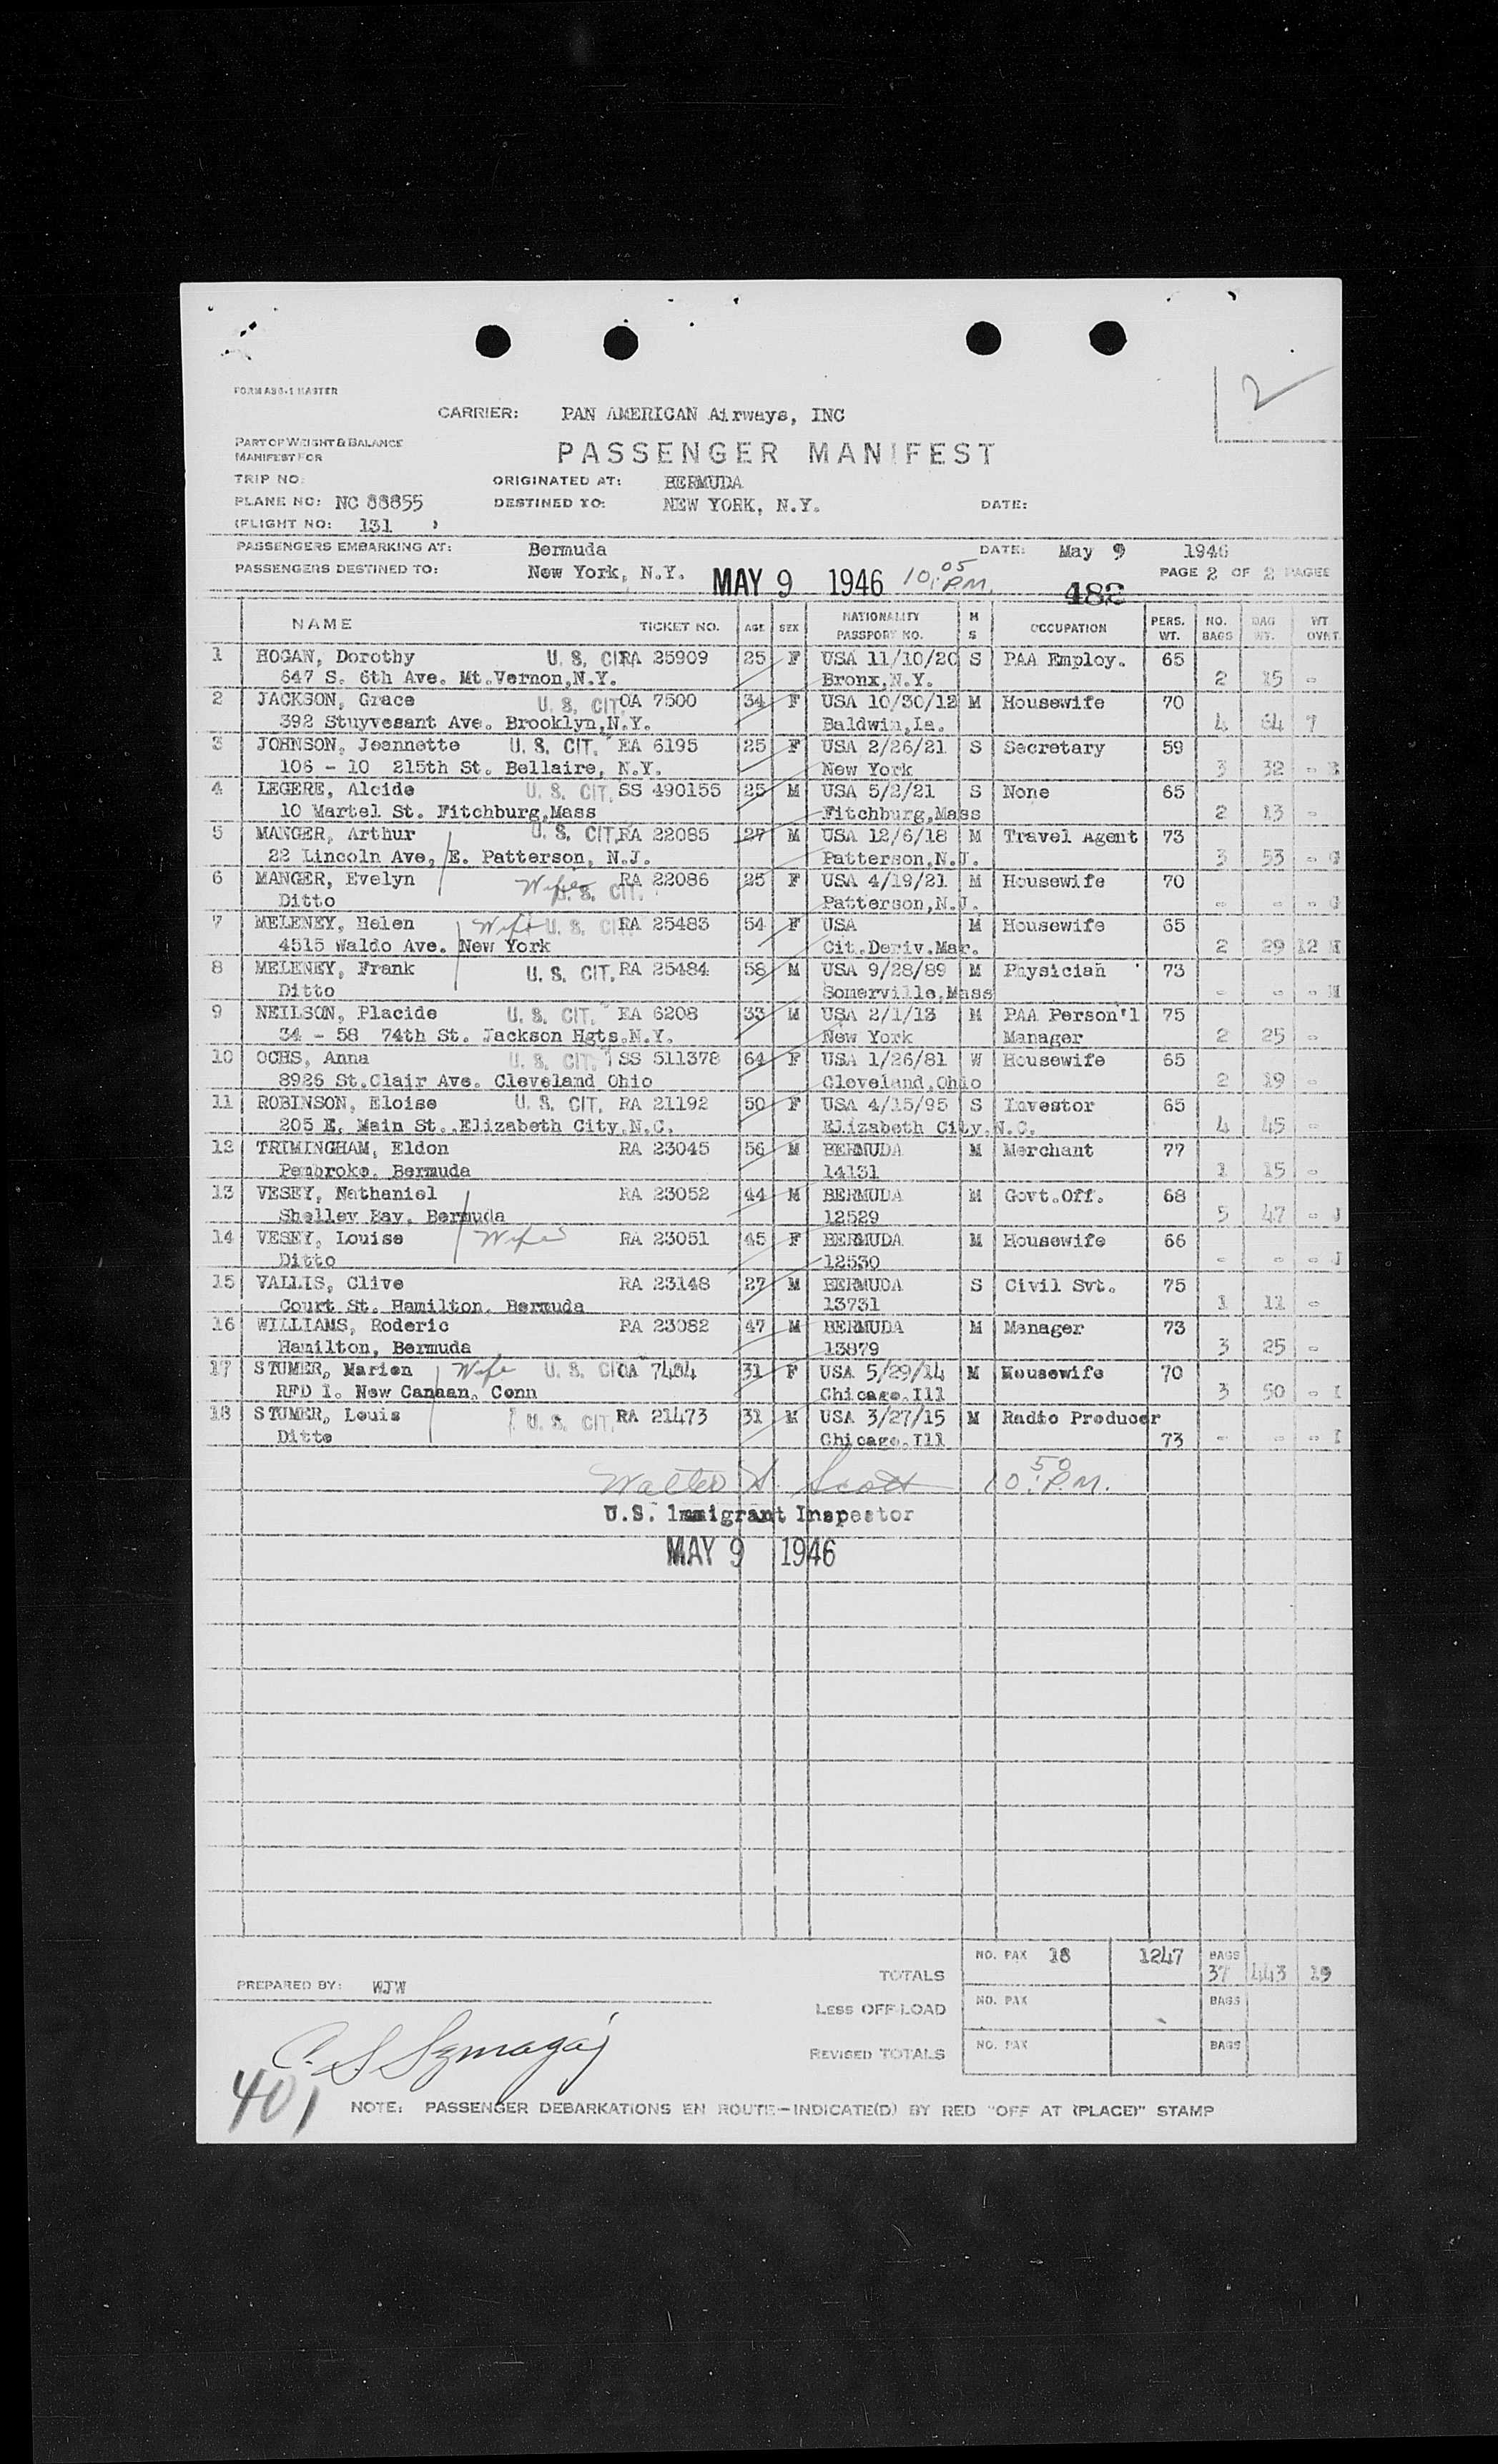 FORM ABG-1 MASTER
2
CARRIER: PAN AMERICAN Airways, INC
PART OF WEIGHT & BALANCE
MANIFEST FOR
PASSENGER MANIFEST
TRIP NO:
ORIGINATED AT: BERMUDA
PLANE NO: NC 88855
DESTINED TO: NEW YORK, N.Y.
DATE:
(FLIGHT NO: 131 )
PASSENGERS EMBARKING AT: Bermuda
DATE: May 9 1946
PASSENGERS DESTINED TO: New York, N.Y. MAY 9 1946 10:05 P.M. PAGE 2 OF 2 PAGES
NAME TICKET NO. AGE SEX NATIONALITY PASSPORT NO. M S OCCUPATION PERS. WT. NO. BAGS BAG WT. WT OVRT
1 HOGAN, Dorothy U. S. CIT. RA 25909 25 F USA 11/10/20 S PAA Employ. 65
647 S. 6th Ave. Mt.Vernon,N.Y. Bronx,N.Y. 2 15 -
2 JACKSON, Grace U. S. CIT. OA 7500 34 F USA 10/30/12 M Housewife 70
392 Stuyvesant Ave. Brooklyn,N.Y. Baldwin,La. 4 64 7
3 JOHNSON, Jeannette U. S. CIT. EA 6195 25 F USA 2/26/21 S Secretary 59
106 - 10 215th St. Bellaire, N.Y. New York 3 32 -
4 LEGERE, Alcide U. S. CIT. SS 490155 25 M USA 5/2/21 S None 65
10 Martel St. Fitchburg,Mass Fitchburg,Mass 2 13 -
5 MANGER, Arthur U. S. CIT. RA 22085 27 M USA 12/6/18 M Travel Agent 73
22 Lincoln Ave, E. Patterson, N.J. Patterson,N.J. 3 53 - G
6 MANGER, Evelyn Wife U. S. CIT. RA 22086 25 F USA 4/19/21 M Housewife 70
Ditto Patterson,N.J. - - - G
7 MELENEY, Helen Wife U. S. CIT. RA 25483 54 F USA M Housewife 65
4515 Waldo Ave. New York Cit.Deriv.Mar. 2 29 12 H
8 MELENEY, Frank U. S. CIT. RA 25484 58 M USA 9/28/89 M Physician 73
Ditto Somerville,Mass - - - H
9 NEILSON, Placide U. S. CIT. EA 6208 33 M USA 2/1/13 M PAA Person'l 75
34 - 58 74th St. Jackson Hgts.N.Y. New York Manager 2 25 -
10 OCHS, Anna U. S. CIT. SS 511378 64 F USA 1/26/81 W Housewife 65
8926 St.Clair Ave. Cleveland Ohio Cleveland,Ohio 2 19 -
11 ROBINSON, Eloise U. S. CIT. RA 21192 50 F USA 4/15/95 S Investor 65
205 E. Main St..Elizabeth City,N.C. Elizabeth City,N.C. 4 45 -
12 TRIMINGHAM, Eldon RA 23045 56 M BERMUDA M Merchant 77
Pembroke, Bermuda 14131 1 15 -
13 VESEY, Nathaniel RA 23052 44 M BERMUDA M Govt.Off. 68
Shelley Bay, Bermuda 12529 5 47 - J
14 VESEY, Louise Wife RA 23051 45 F BERMUDA M Housewife 66
Ditto 12530 - - - J
15 VALLIS, Clive RA 23148 27 M BERMUDA S Civil Svt. 75
Court St. Hamilton, Bermuda 13731 1 11 -
16 WILLIAMS, Roderic RA 23082 47 M BERMUDA M Manager 73
Hamilton, Bermuda 13879 3 25 -
17 STUMER, Marien Wife U. S. CIT. OA 7484 31 F USA 5/29/14 M Housewife 70
RFD 1. New Canaan. Conn Chicago,Ill 3 50 - I
18 STUMER, Louis U. S. CIT. RA 21473 31 M USA 3/27/15 M Radio Producer
Ditto Chicago,Ill 73 - - - I
Walter S. Scott 10:50 P.M.
U.S. Immigrant Inspector
MAY 9 1946
TOTALS NO. PAX 18 1247 BAGS 37 443 19
PREPARED BY: WJW
LESS OFF-LOAD NO. PAX BAGS
REVISED TOTALS NO. PAX BAGS
401
NOTE: PASSENGER DEBARKATIONS EN ROUTE-INDICATE(D) BY RED "OFF AT (PLACE)" STAMP